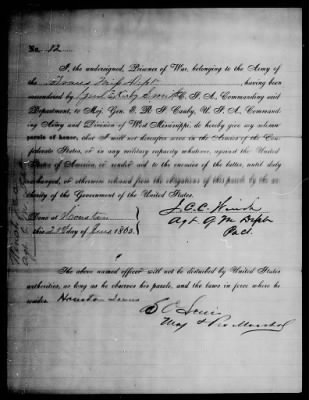 No. 12
I, the undersigned, Prisoner of War, belonging to the Army of
the Trans Miss Dept, having been
surrendered by Genl E Kirby Smith C. S. A., Commanding said
Department, to Maj. Gen. E. R. S. Canby, U. S. A., Command-
ing Army and Division of West Mississippi, do hereby give my solemn
parole of honor, that I will not hereafter serve in the Armies of the Con-
federate States, or in any military capacity whatever, against the United
States of America, or render aid to the enemies of the latter, until duly
exchanged, or otherwise released from the obligations of this parole by the au-
thority of the Government of the United States.
J. C. C.
Done at Houston
Agt Q M Dept
this 21st day of June 1865.
The above named officer will not be disturbed by United States
authorities, as long as he observes his parole, and the laws in force where he
resides. Houston Texas
Maj & Pro Marshal